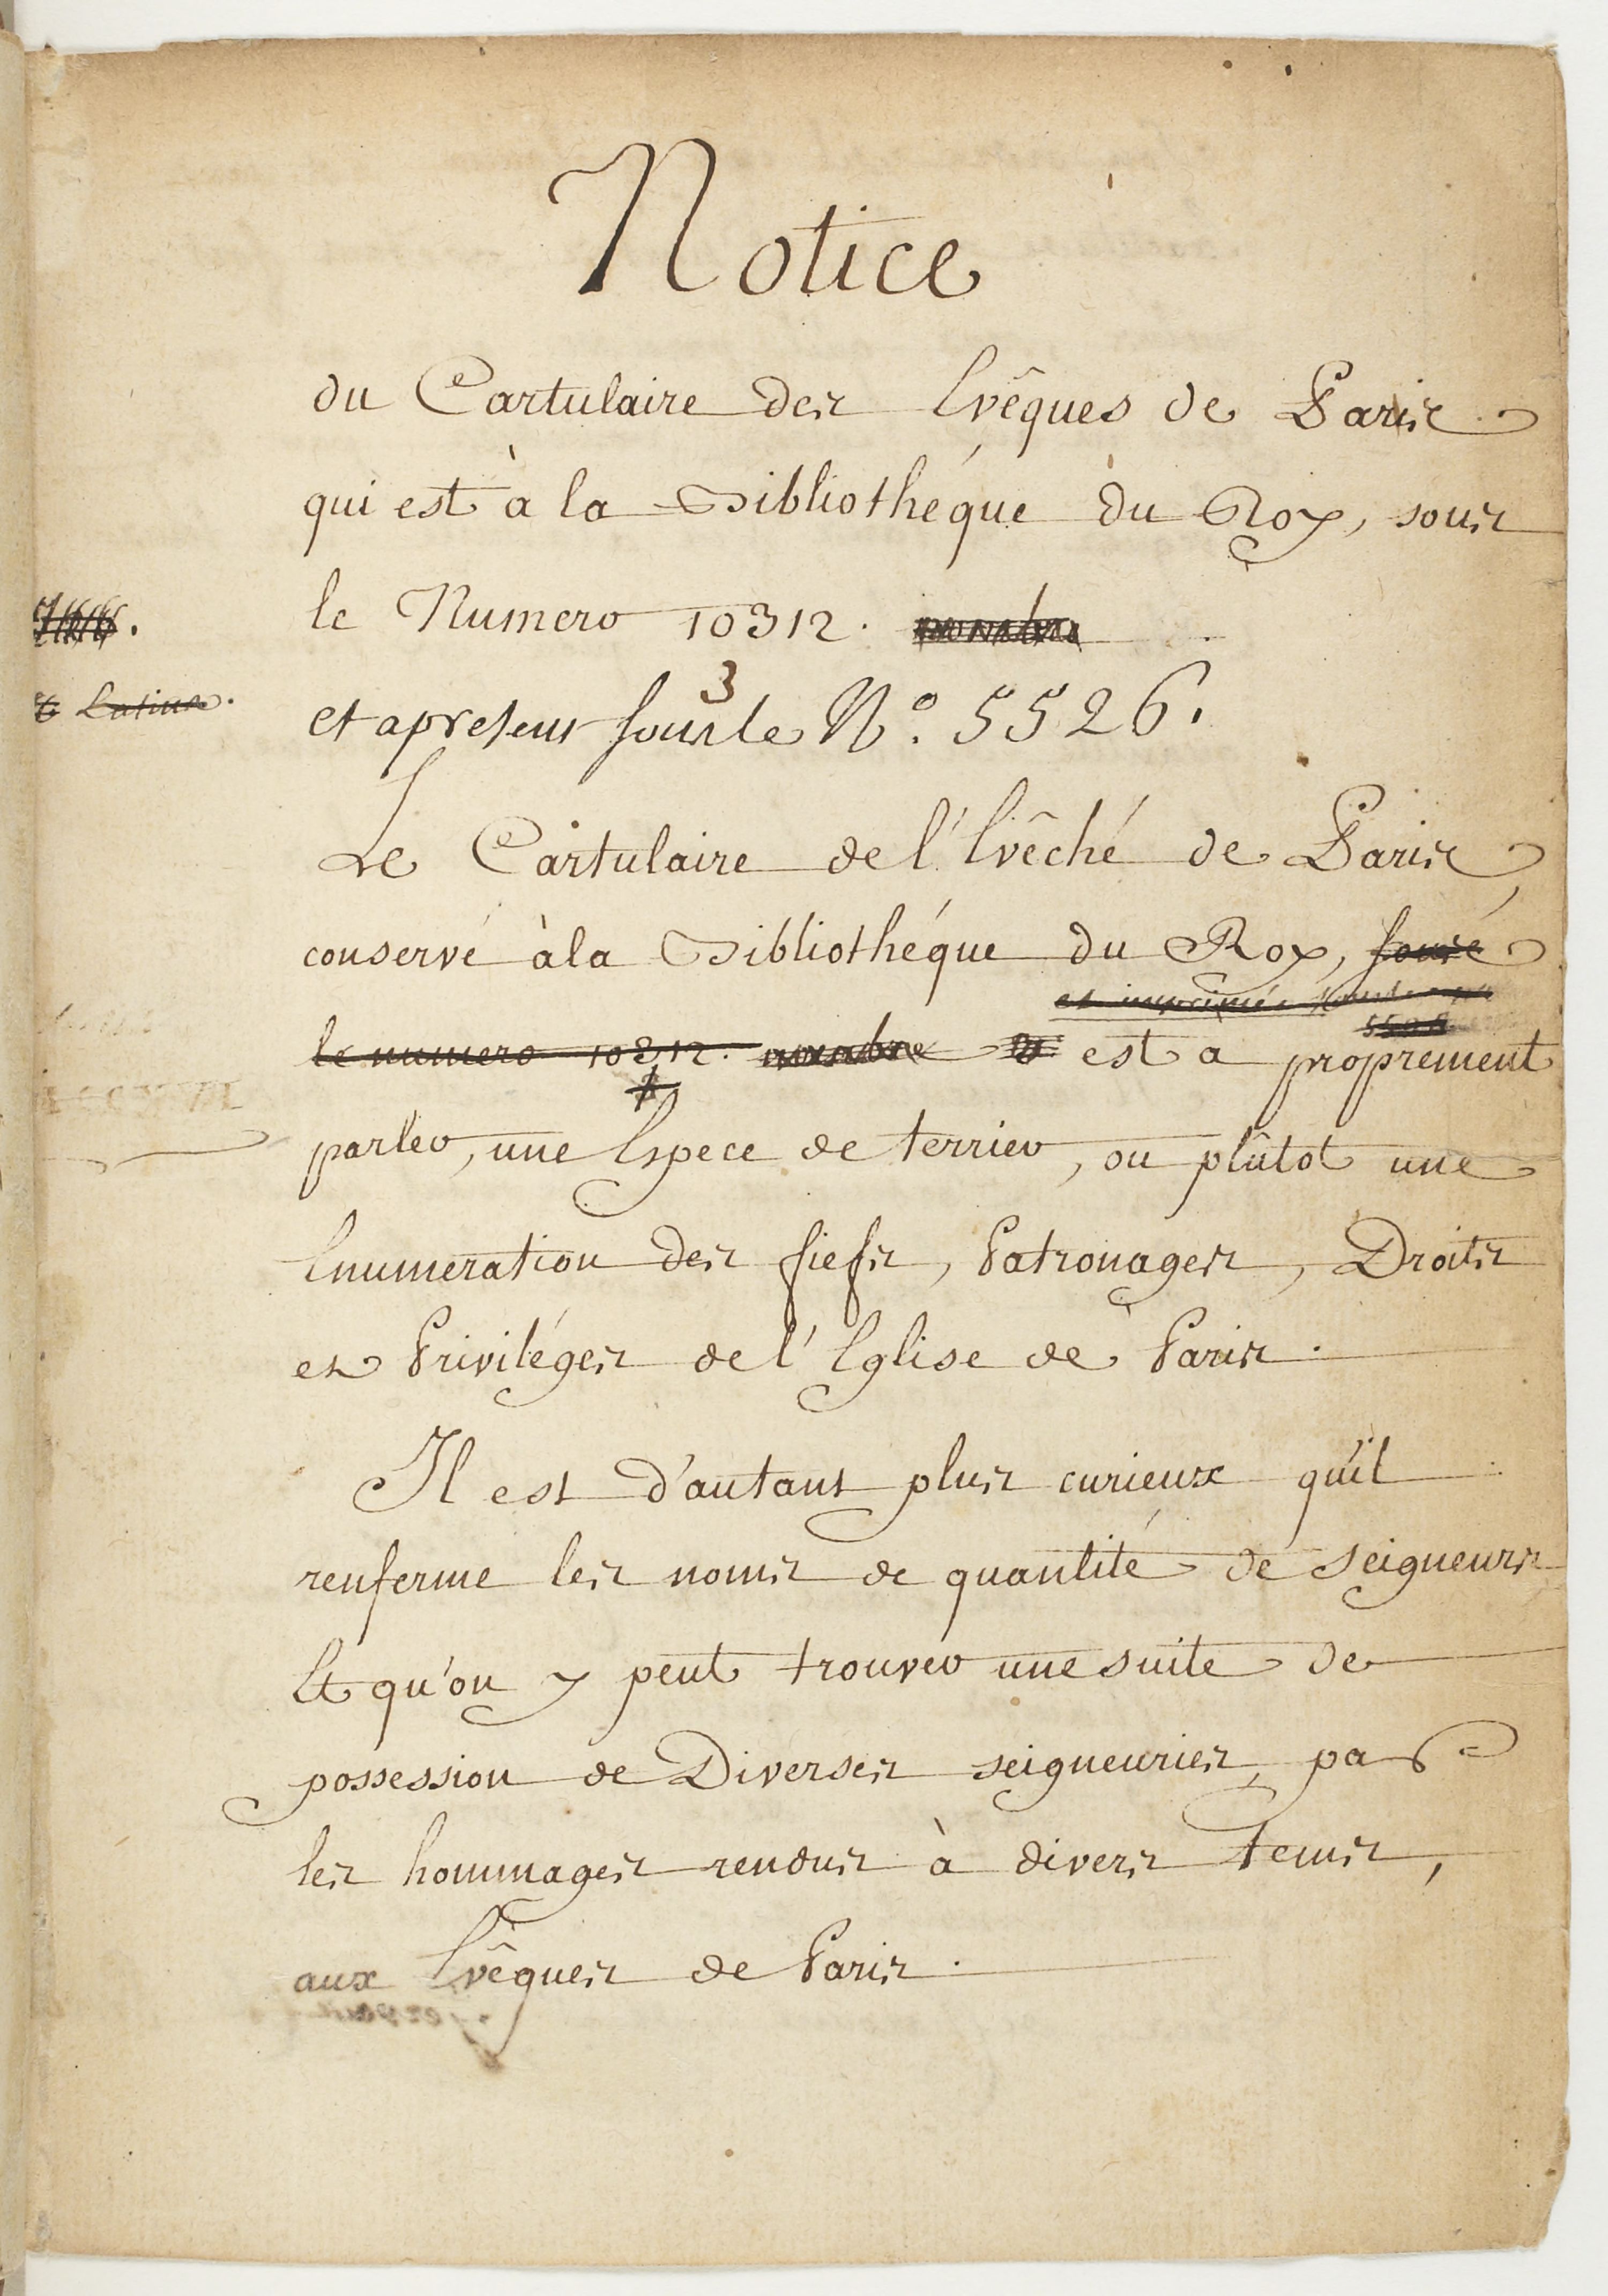 Notice
du Cartulaire des Evêques de Paris
qui est à la Bibliothéque du Roy, sous
le Numero 10312.
3
et apresent sous le N.º 5526.
Latine.
Le Cartulaire de l'Evêché de Paris,
conservé à la Bibliothéque du Roy, sous
le numero 10312. est a proprement
parler, une Espece de terrier, ou plûtot une
Enumeration des fiefs, Patronages, Droits
et Priviléges de l'Eglise de Paris.
Il est d'autant plus curieux qu'il
renferme les noms de quantité de seigneurs
Et qu'on y peut trouver une suite de
possession de Diverses seigneuries, par
les hommages rendus à divers tems,
aux Evêques de Paris.